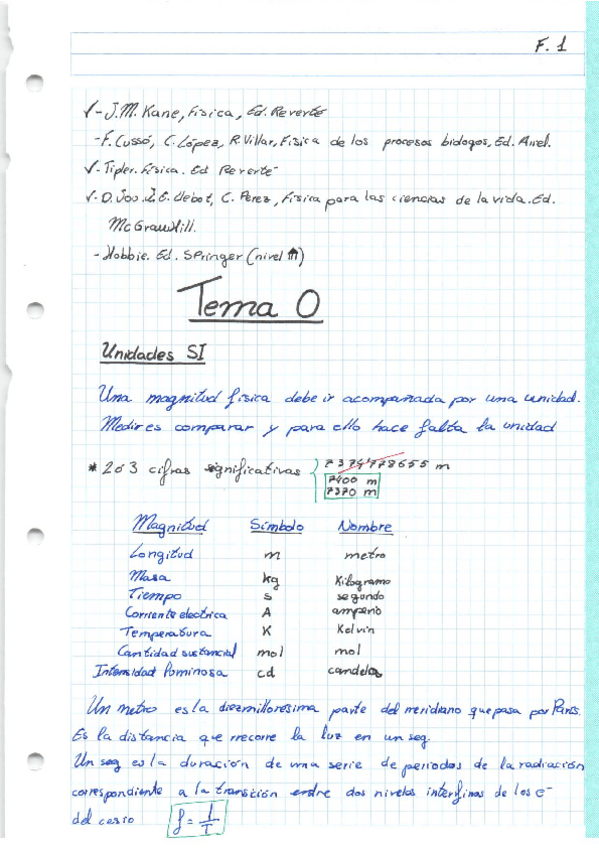 F. 1
✓- J.M. Kane, Física, Ed. Reverté
- F. Cussó, C. López, R. Villar, Física de los procesos biologos, Ed. Ariel.
✓- Tipler. Física. Ed Reverté
✓- D. Jou. J.E. Llebot, C. Perez, Física para las ciencias de la vida. Ed.
McGrawHill.
- Hobbie. Ed. Springer (nivel ⇑)
Tema 0
Unidades SI
Una magnitud física debe ir acompañada por una unidad.
Medir es comparar y para ello hace falta la unidad
* 2 ó 3 cifras significativas
7374'778655 m
7400 m
7370 m
Magnitud Símbolo Nombre
Longitud m metro
Masa kg Kilogramo
Tiempo s segundo
Corriente electrica A amperio
Temperatura K Kelvin
Cantidad sustancial mol mol
Intensidad luminosa cd candela
Un metro es la diezmillonesima parte del meridiano que pasa por París.
Es la distancia que recorre la luz en un seg.
Un seg es la duración de una serie de periodos de la radiación
correspondiente a la transición entre dos niveles interfinos de los e-
del cesio f = 1/T